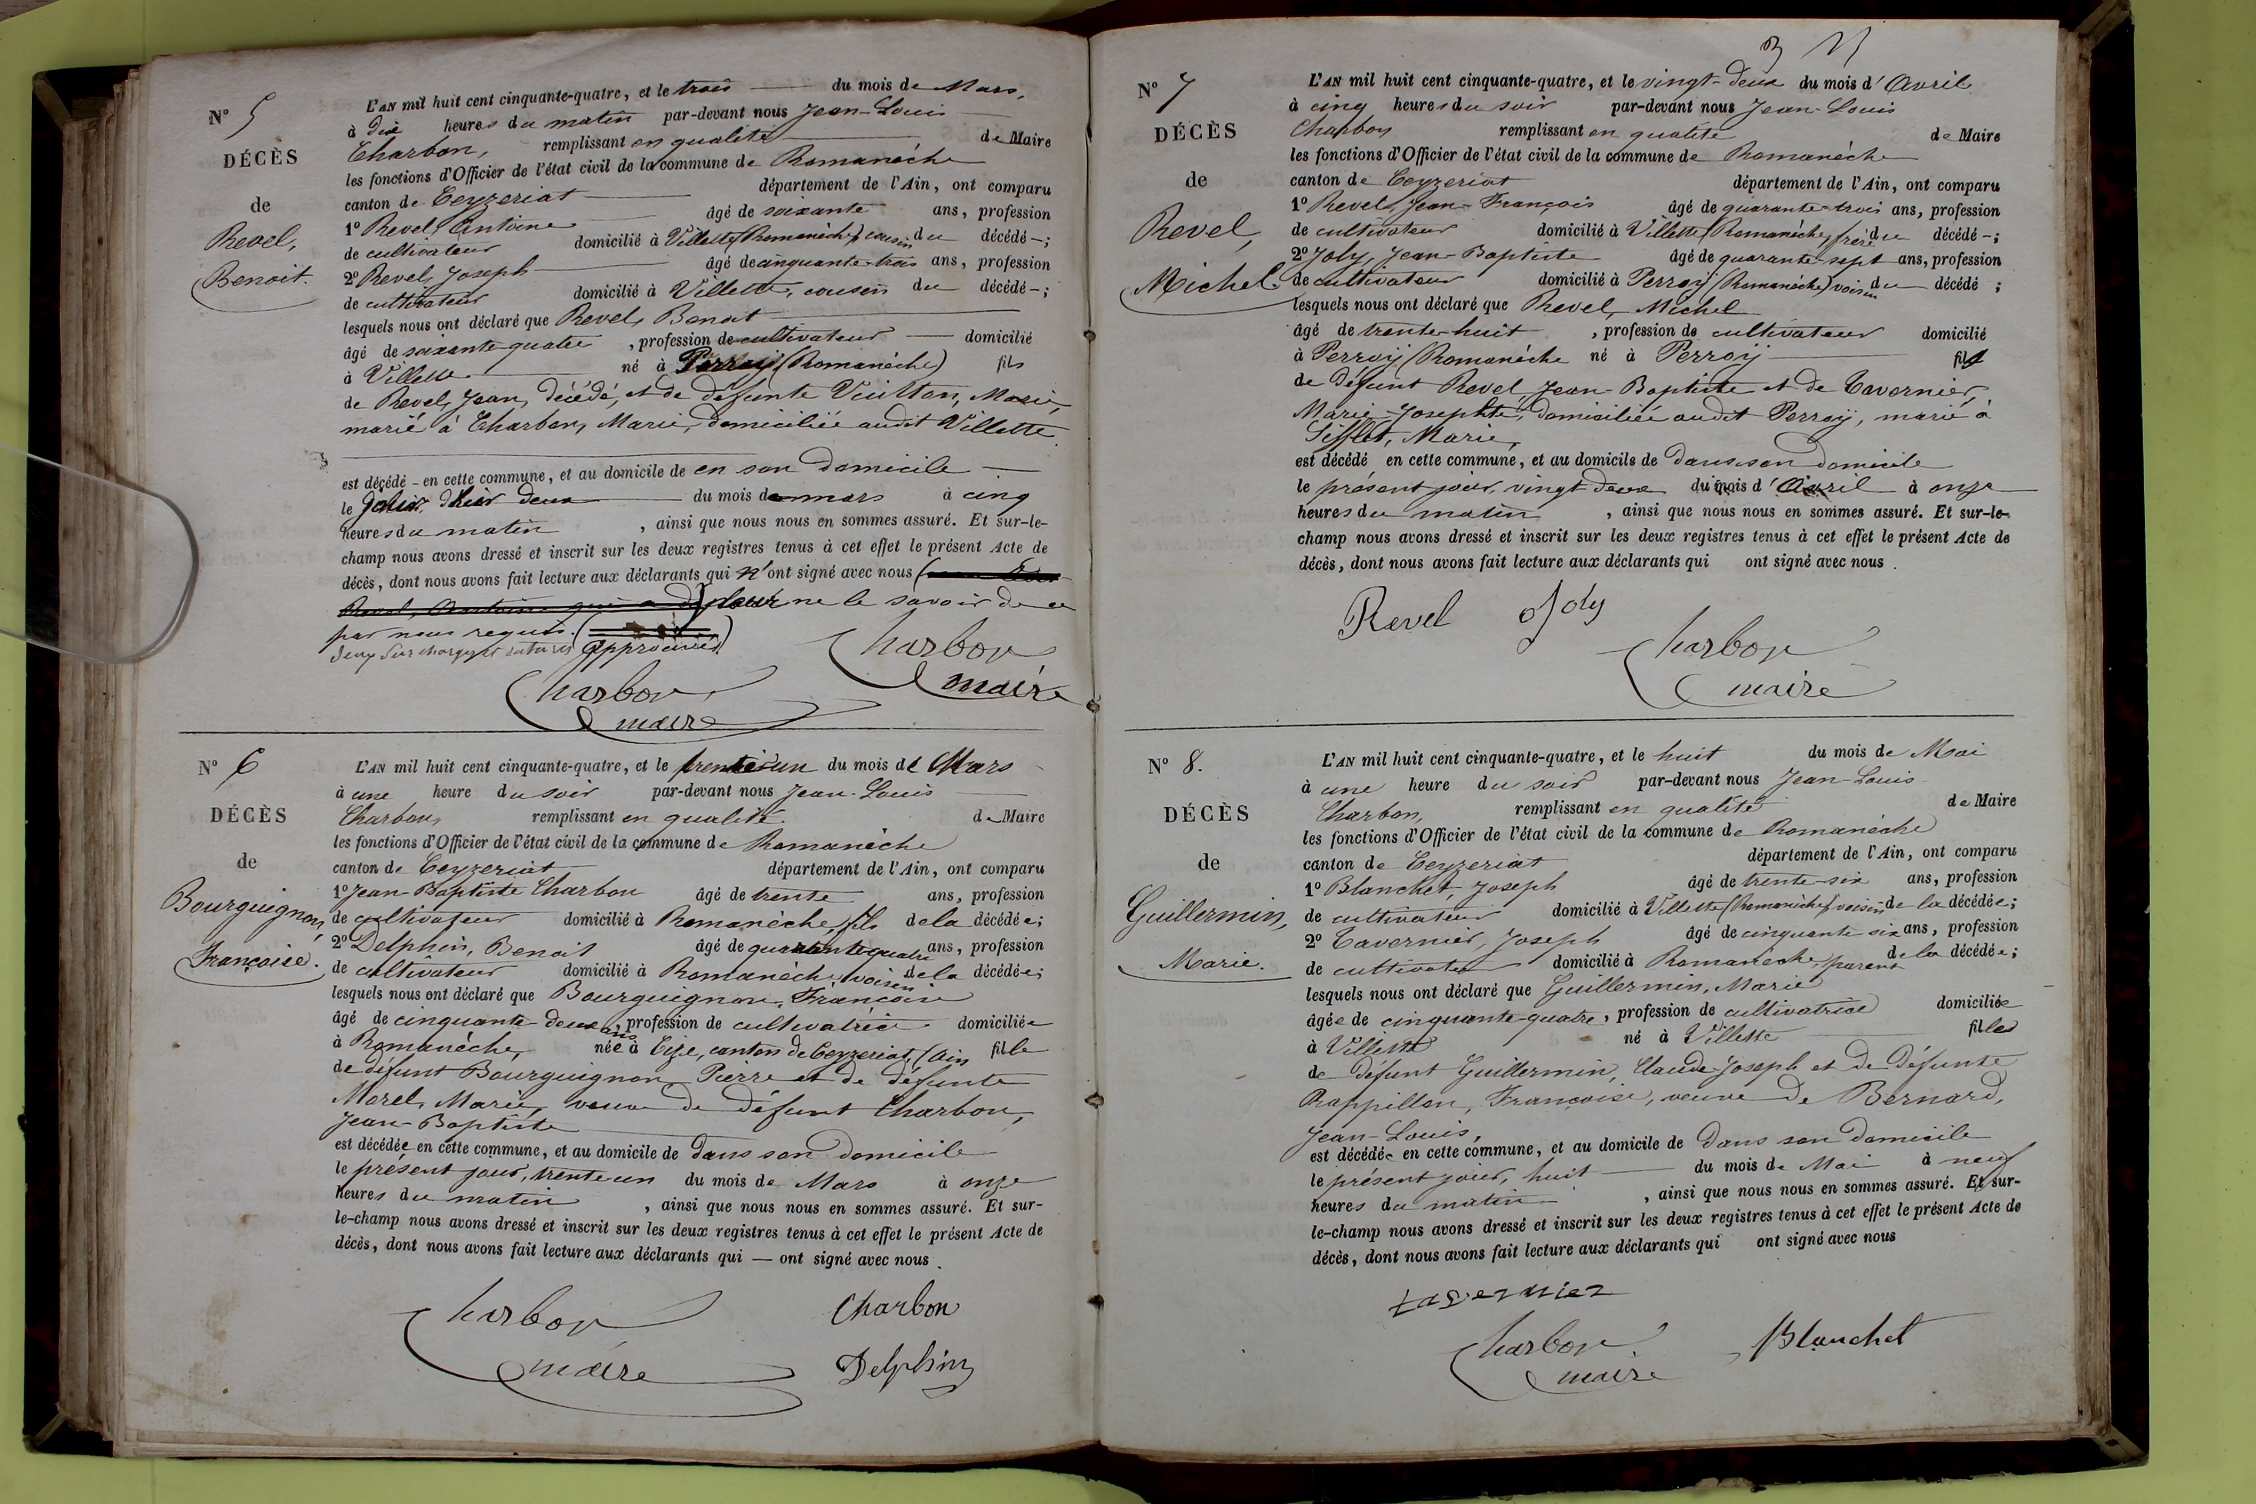 Nº 5
DÉCÈS
de
Revel,
Benoit.
L'AN mil huit cent cinquante-quatre, et le trois du mois de Mars,
à dix heures du matin par-devant nous Jean-Louis
Charbon, remplissant en qualité de Maire
les fonctions d'Officier de l'état civil de la commune de Romanèche
canton de Ceyzeriat département de l'Ain, ont comparu
1º Revel, Antoine âgé de soixante ans, profession
de cultivateur domicilié à Villette (Romanèche), cousin du décédé -;
2º Revel, Joseph âgé de cinquante-trois ans, profession
de cultivateur domicilié à Villette, cousin du décédé -;
lesquels nous ont déclaré que Revel, Benoit
âgé de soixante-quatre, profession de cultivateur domicilié
à Villette né à Perroy (Romanèche) fils
de Revel, Jean, décédé, et de défunte Vuitton, Marie,
marié à Charbon, Marie, domiciliée audit Villette.
est décédé - en cette commune, et au domicile de en son domicile
le jour d'hier deux du mois de mars à cinq
heures du matin, ainsi que nous nous en sommes assuré. Et sur-le-
champ nous avons dressé et inscrit sur les deux registres tenus à cet effet le présent Acte de
décès, dont nous avons fait lecture aux déclarants qui n'ont signé avec nous (
Revel, Antoine qui a déclaré ne le savoir de ce
par nous requis. ( )
deux surcharges et ratures approuvés
Charbon
maire
Charbon
maire
Nº 6
DÉCÈS
de
Bourguignon,
Françoise.
L'AN mil huit cent cinquante-quatre, et le trente-un du mois de Mars
à une heure du soir par-devant nous Jean-Louis
Charbon, remplissant en qualité de Maire
les fonctions d'Officier de l'état civil de la commune de Romanèche
canton de Ceyzeriat département de l'Ain, ont comparu
1º Jean-Baptiste Charbon âgé de trente ans, profession
de cultivateur domicilié à Romanèche, fils de la décédée;
2º Delphin, Benoit âgé de quarante-quatre ans, profession
de cultivateur domicilié à Romanèche, voisin de la décédée;
lesquels nous ont déclaré que Bourguignon, Françoise
âgé de cinquante-deux ans, profession de cultivatrice domiciliée
à Romanèche, née à Cize, canton de Ceyzeriat, (Ain fille
de défunt Bourguignon, Pierre et de défunte
Morel, Marie, veuve de défunt Charbon,
Jean-Baptiste
est décédée en cette commune, et au domicile de dans son domicile
le présent jour, trente un du mois de Mars à onze
heures du matin, ainsi que nous nous en sommes assuré. Et sur-
le-champ nous avons dressé et inscrit sur les deux registres tenus à cet effet le présent Acte de
décès, dont nous avons fait lecture aux déclarants qui — ont signé avec nous.
Charbon
maire
Charbon
Delphin
Nº 7
DÉCÈS
de
Revel,
Michel
L'AN mil huit cent cinquante-quatre, et le vingt-deux du mois d'Avril
à cinq heures du soir par-devant nous Jean-Louis
Charbon remplissant en qualité de Maire
les fonctions d'Officier de l'état civil de la commune de Romanèche
canton de Ceyzeriat département de l'Ain, ont comparu
1º Revel, Jean-François âgé de quarante-trois ans, profession
de cultivateur domicilié à Villette (Romanèche, frère du décédé -;
2º Joly, Jean-Baptiste âgé de quarante-sept ans, profession
de cultivateur domicilié à Perroy (Romanèche) voisin du décédé ;
lesquels nous ont déclaré que Revel, Michel
âgé de trente-huit, profession de cultivateur domicilié
à Perroy (Romanèche né à Perroy fils
de défunt Revel, Jean-Baptiste et de Tavernier,
Marie-Josephte, domiciliée audit Perroy, marié à
Sifflet, Marie,
est décédé en cette commune, et au domicile de dans son domicile
le présent jour, vingt-deux du mois d'Avril à onze
heures du matin, ainsi que nous nous en sommes assuré. Et sur-le-
champ nous avons dressé et inscrit sur les deux registres tenus à cet effet le présent Acte de
décès, dont nous avons fait lecture aux déclarants qui ont signé avec nous.
Revel Joly
Charbon
maire
Nº 8.
DÉCÈS
de
Guillermin,
Marie.
L'AN mil huit cent cinquante-quatre, et le huit du mois de Mai
à une heure du soir par-devant nous Jean-Louis
Charbon, remplissant en qualité de Maire
les fonctions d'Officier de l'état civil de la commune de Romanèche
canton de Ceyzeriat département de l'Ain, ont comparu
1º Blanchet, Joseph âgé de trente-six ans, profession
de cultivateur domicilié à Villette (Romanèche), voisin de la décédée;
2º Tavernier, Joseph âgé de cinquante six ans, profession
de cultivateur domicilié à Romanèche, parent de la décédée;
lesquels nous ont déclaré que Guillermin, Marie
âgée de cinquante-quatre, profession de cultivatrice domiciliée
à Villette né à Villette fille
de défunt Guillermin, Claude-Joseph et de défunte
Rappillon, Françoise, veuve de Bernard,
Jean-Louis,
est décédée en cette commune, et au domicile de dans son domicile
le présent jour, huit du mois de Mai à neuf
heures du matin, ainsi que nous nous en sommes assuré. Et sur-
le-champ nous avons dressé et inscrit sur les deux registres tenus à cet effet le présent Acte de
décès, dont nous avons fait lecture aux déclarants qui ont signé avec nous
tavernier
Charbon
maire
Blanchet